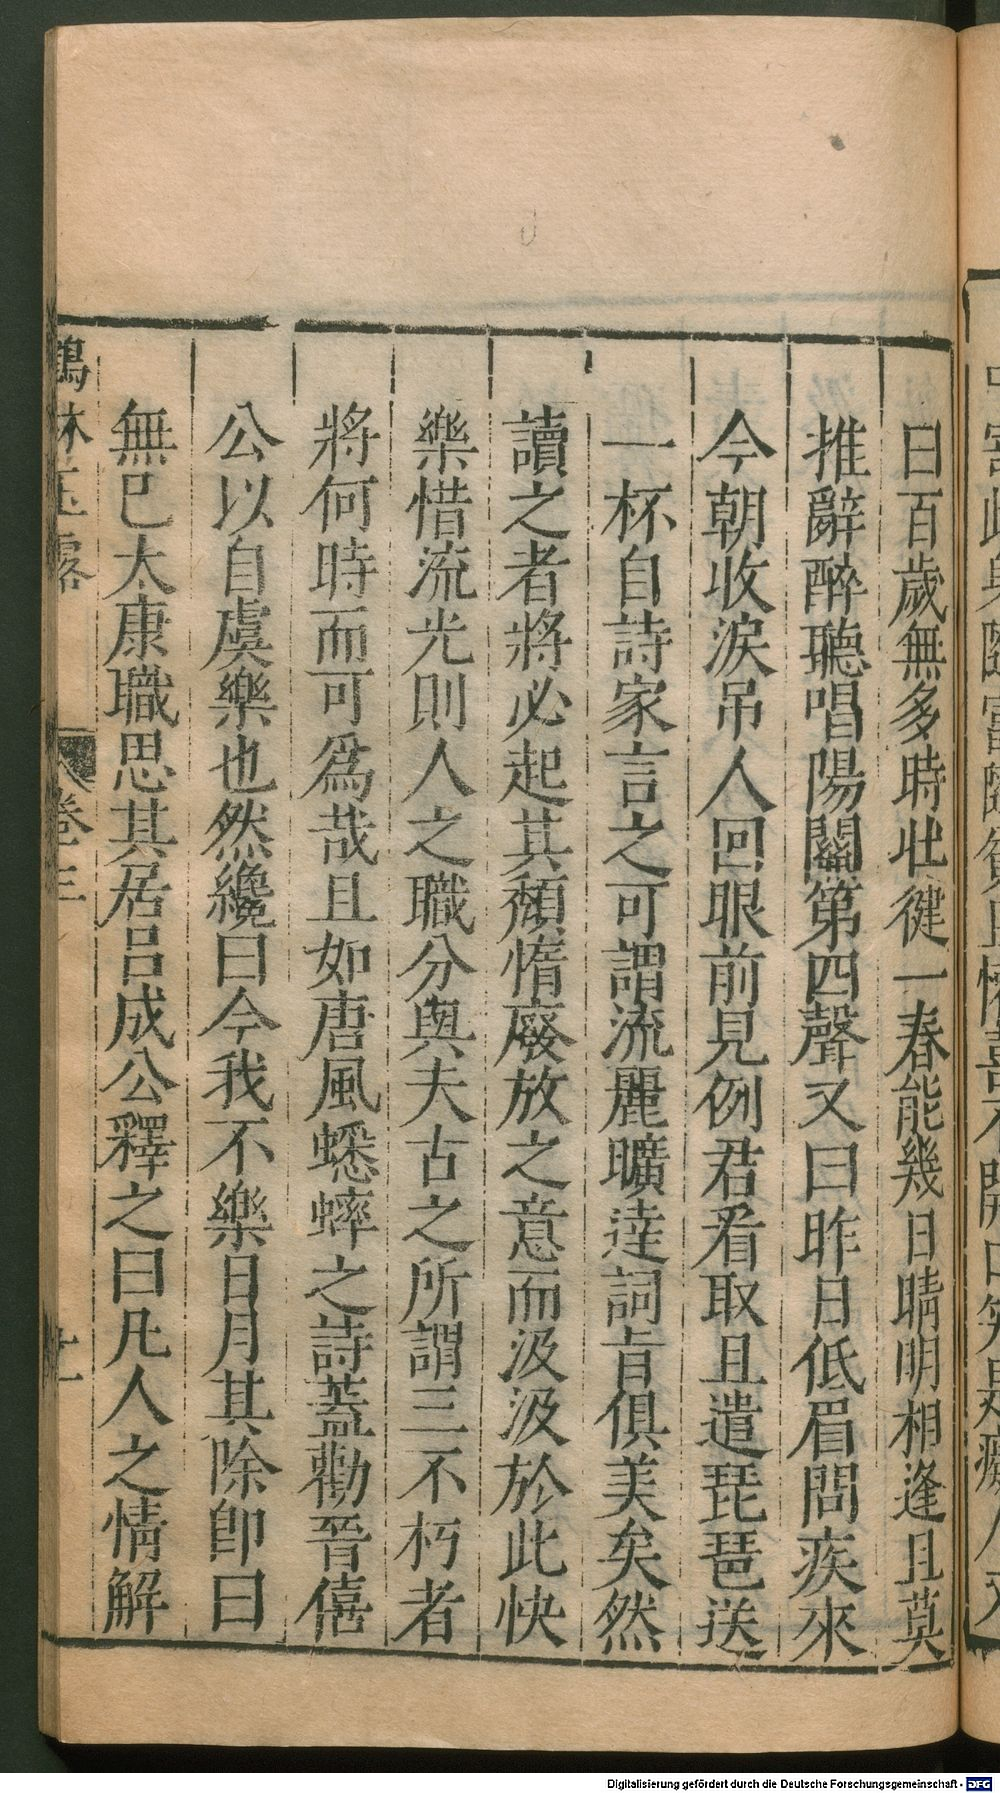 曰百歲無多時壯健一春能幾日晴明相逢且莫
推辭醉聽唱陽關第四聲又曰昨日低眉問疾來
今朝收淚吊人回眼前見例君看取且遣琵琶送
一杯自詩家言之可謂流麗曠達詞旨俱美矣然
讀之者將必起其頹惰廢放之意而汲汲於此快
樂惜流光則人之職分與夫古之所謂三不朽者
將何時而可爲哉且如唐風蟋蟀之詩蓋勸晉僖
公以自虞樂也然纔曰今我不樂日月其除卽曰
無已太康職思其居呂成公釋之曰凡人之情解
鶴林玉露 卷三 十一
Digitalisierung gefördert durch die Deutsche Forschungsgemeinschaft - DFG